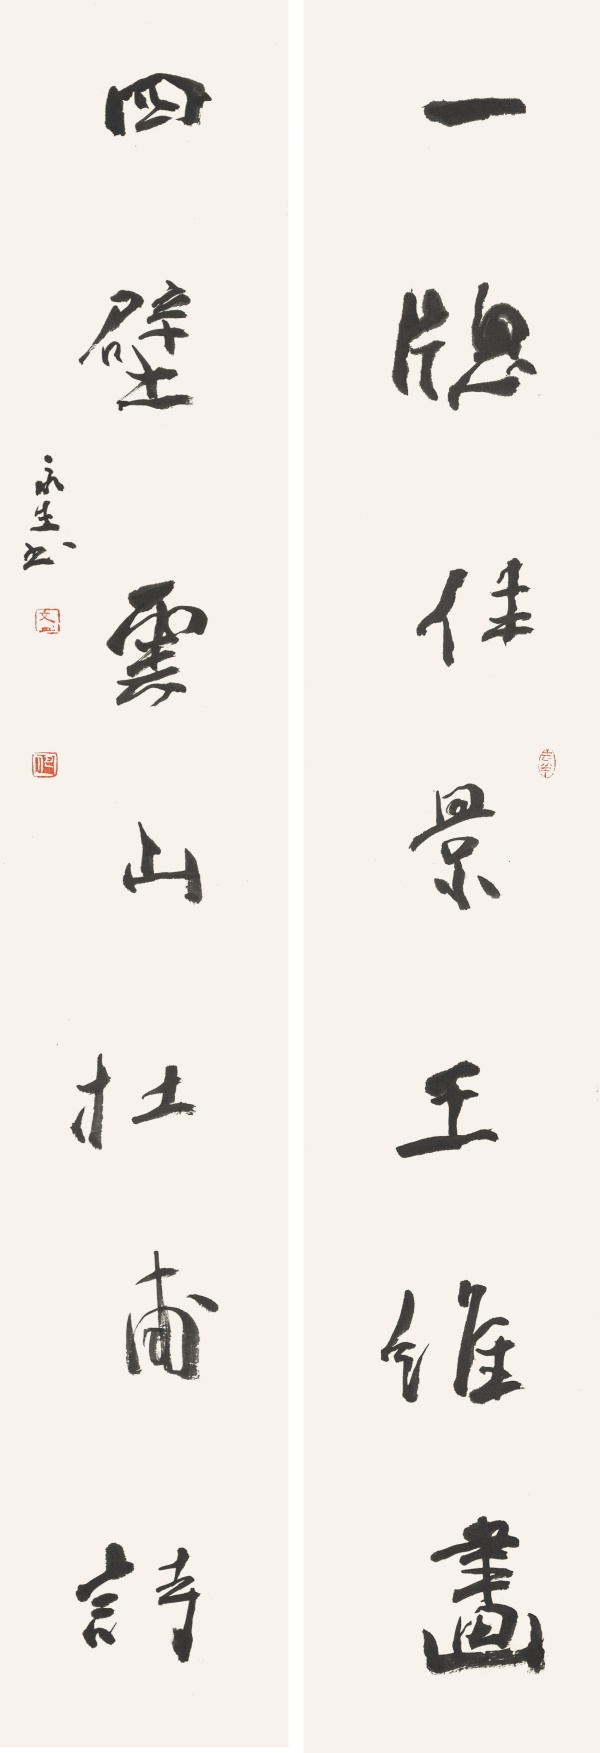 一牕佳景王維畫
四壁雲山杜甫詩
永生书